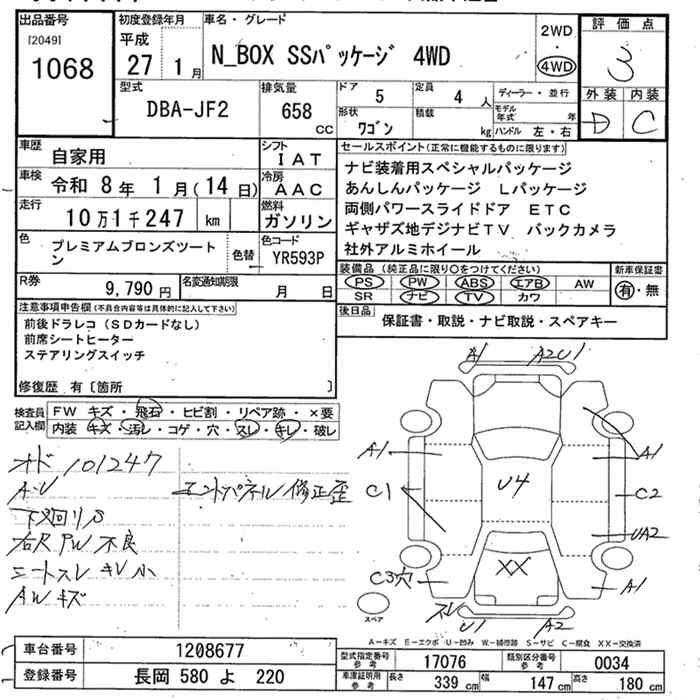 出品番号
[2049]
1068
初度登録年月
平成
27 1月
車名・グレード
N_BOX SSパッケージ 4WD
2WD
・
4WD
評価点
3
外装 内装
D C
型式
DBA-JF2
排気量
658
cc
ドア
5
定員
4 人
形状
ワゴン
積載
kg
ディーラー・並行
モデル年式 年
ハンドル 左・右
車歴
自家用
シフト
IAT
車検
令和 8年 1月(14日)
冷房
AAC
走行
10万1千247 km
燃料
ガソリン
色
プレミアムブロンズツートン
色替
色コード
YR593P
R券
9,790 円
名変通知期限
月 日
セールスポイント(正常に機能するものに限ります)
ナビ装着用スペシャルパッケージ
あんしんパッケージ Lパッケージ
両側パワースライドドア ETC
ギャザズ地デジナビTV バックカメラ
社外アルミホイール
装備品(純正品に限り○をつけてください)
PS PW ABS エアB AW
SR ナビ TV カワ
新車保証書
有・無
後日品
保証書・取説・ナビ取説・スペアキー
注意事項申告欄(不具合内容等は具体的に記入して下さい)
前後ドラレコ(SDカードなし)
前席シートヒーター
ステアリングスイッチ
修復歴 有〔箇所 〕
検査員記入欄
FW キズ・飛石・ヒビ割・リペア跡・×要
内装 キズ・汚レ・コゲ・穴・スレ・キレ・破レ
オド 101247
A・U
下廻りS
右尺PW不良
シートスレ キレ小
AWキズ
エンドパネル修正歪
A1 A2U1
A1 A1
C1 U4 C2
UA2
XX
C3穴 A1
スレ U1 A2
スペア
A-キズ E-エクボ U-凹み W-補修跡 S-サビ C-腐食 XX-交換済
車台番号
1208677
登録番号
長岡 580 よ 220
型式指定番号
参考
17076
類別区分番号
参考
0034
車庫証明用
参考
長さ 339 cm 幅 147 cm 高さ 180 cm